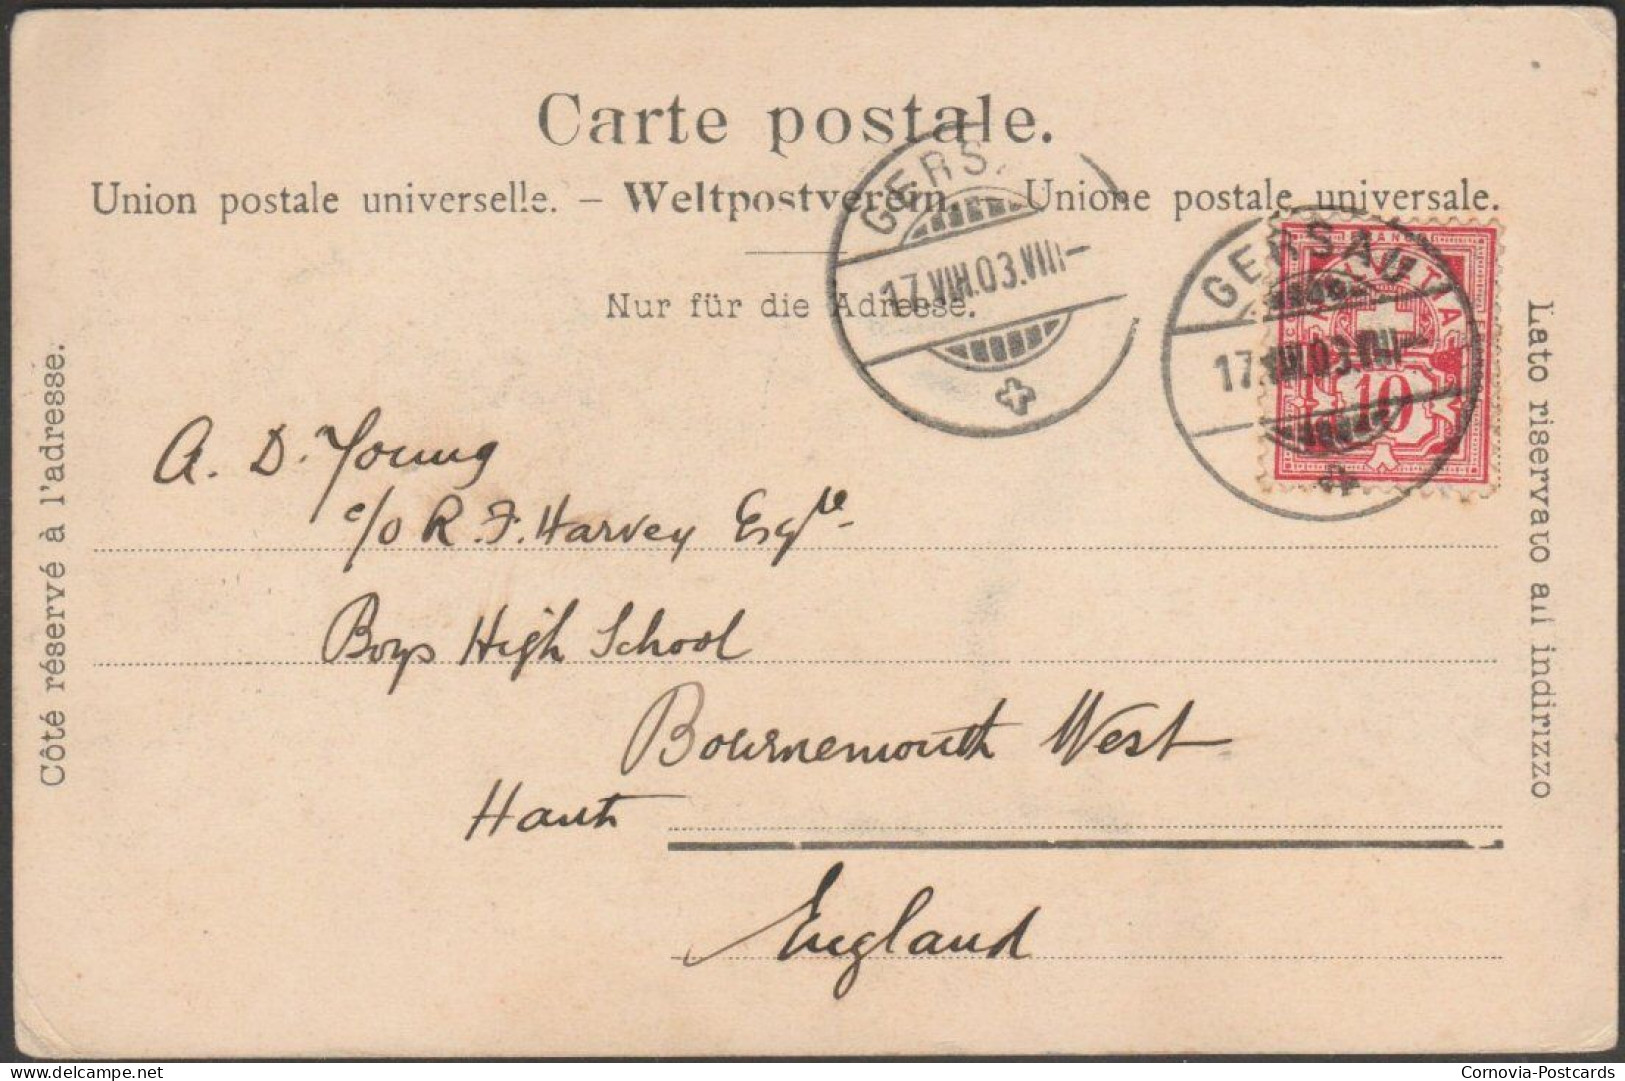 Carte postale.
Union postale universelle. – Weltpostverein. – Unione postale universale.
Nur für die Adresse.
GERSAU
17.VIII.03.VIII–
GERSAU
17.VIII.03.VIII–
FRANCO
HELVETIA
10
Côté réservé à l'adresse.
Lato riservato all indirizzo
A. D. Young
c/o R. F. Harvey Esqre
Boys High School
Bournemouth West
Hants
England
delcampe.net
Cornovia-Postcards